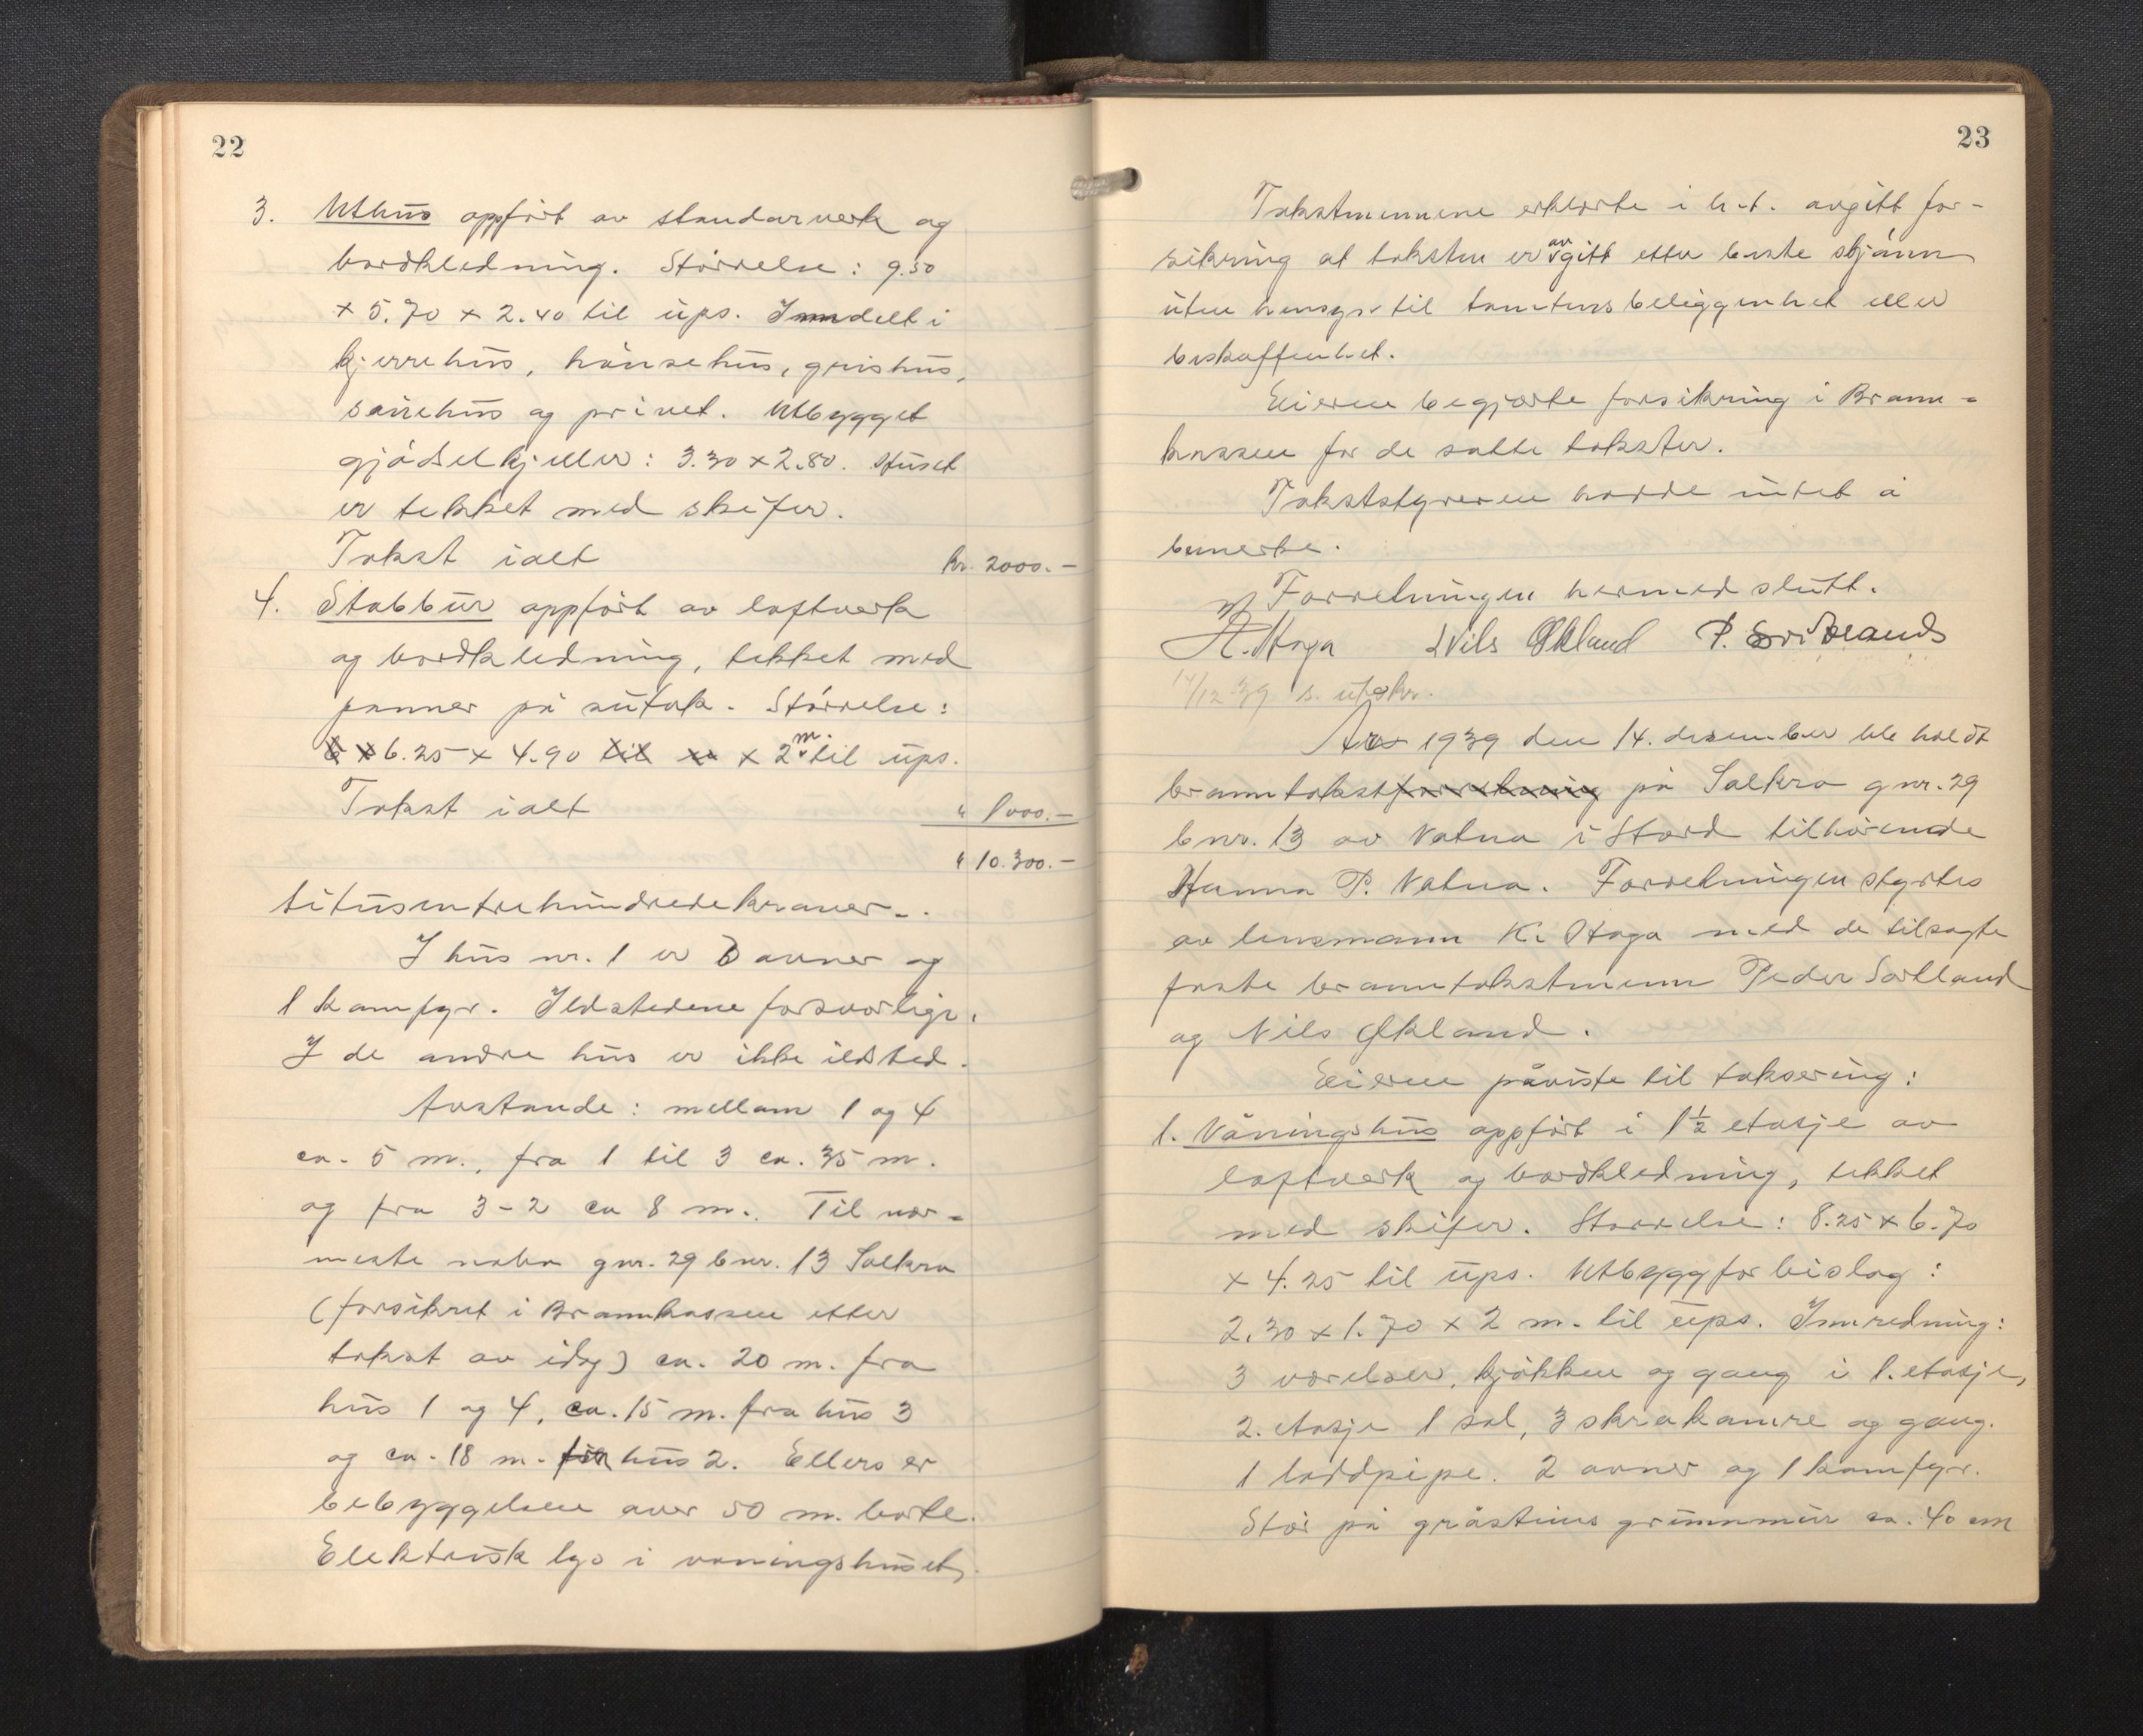 22
3. Uthus oppført av standarverk og
bordkledning. Størrelse: 9.50
x 5.70 x 2.40 til ups. Inndelt i
kjerrehus, hønsehus, grishus,
sauehus og privet. Utbygget
gjødselkjeller: 3.30 x 2.80. Huset
er tekket med skifer.
Takst ialt kr. 2000.-
4. Stabbur oppført av laftverk
og bordkledning, tekket med
panner på sutak. Størrelse:
6.25 x 4.90 x 2 m. til ups.
Takst ialt " 1000.-
" 10.300.-
titusentrehundredekroner-.
I hus nr. 1 er 3 ovner og
1 komfyr. Ildstedene forsvarlige.
I de andre hus er ikke ildsted.
Avstande: mellom 1 og 4
ca. 5 m., fra 1 til 3 ca. 35 m.
og fra 3-2 ca 8 m. Til nær-
meste nabo gnr. 29 bnr. 13 Solkro
(forsikret i Brannkassen etter
takst av idag) ca. 20 m. fra
hus 1 og 4, ca. 15 m. fra hus 3
og ca. 18 m. fra hus 2. Ellers er
bebyggelsen over 50 m. borte.
Elektrisk lys i våningshuset.
23
Takstmennene erklærte i h.t. avgitt for-
sikring at taksten er avgitt etter beste skjønn
uten hensyn til tomtens beliggenhet eller
beskaffenhet.
Eieren begjærte forsikring i Brann-
kassen for de satte takster.
Takststyreren hadde intet å
bemerke.
Forretningen hermed slutt.
K. Haga Nils Økland P.
14/12 39 s. utskr.
År 1939 den 14. desember ble holdt
branntakstforretning på Solkro gnr. 29
bnr. 13 av Vatna i Stord tilhørende
Hanna P. Vatna. Forretningen styrtes
av lensmann K. Haga med de tilsagte
faste branntakstmenn Peder Sørlland
og Nils Økland.
Eieren påviste til taksering:
1. Våningshus oppført i 1½ etasje av
laftverk og bordkledning, tekket
med skifer. Størrelse: 8.25 x 6.70
x 4.25 til ups. Utbygg for bislag:
2.30 x 1.70 x 2 m. til ups. Innredning:
3 værelser, kjøkken og gang i 1. etasje,
2. etasje 1 sal, 3 skråkamre og gang.
1 loddpipe. 2 ovner og 1 komfyr.
Står på gråsteins grunnmur ca. 40 cm